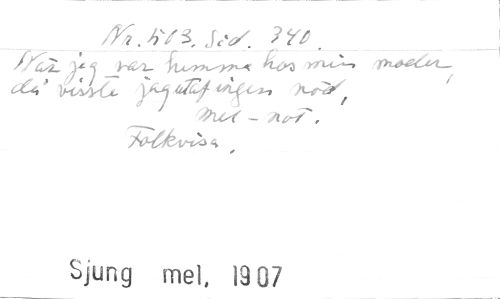 Nr. 503. Sid. 340.
När jag var hemma hos min moder,
då visste jag utaf ingen nöd,
mel-not.
Folkvisa.
Sjung mel, 1907